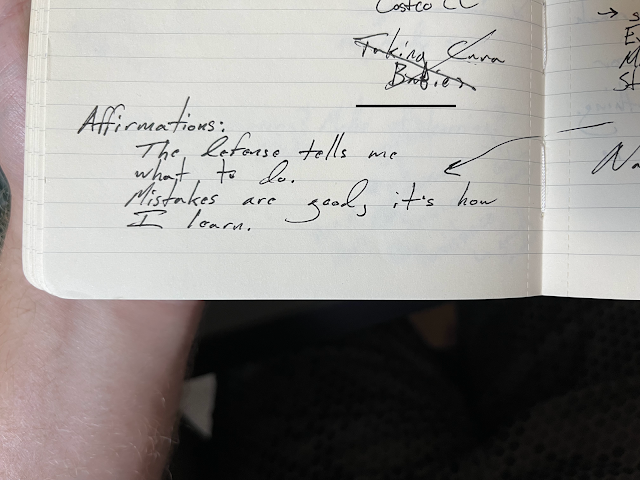 Costco CC
Taking Cara
Babies
Affirmations:
The defense tells me
what to do.
Mistakes are good, it's how
I learn.